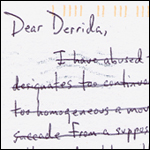 Dear Derrida,
I have abused
designates too continuo
too homogeneous a mov
saccade from a suppos